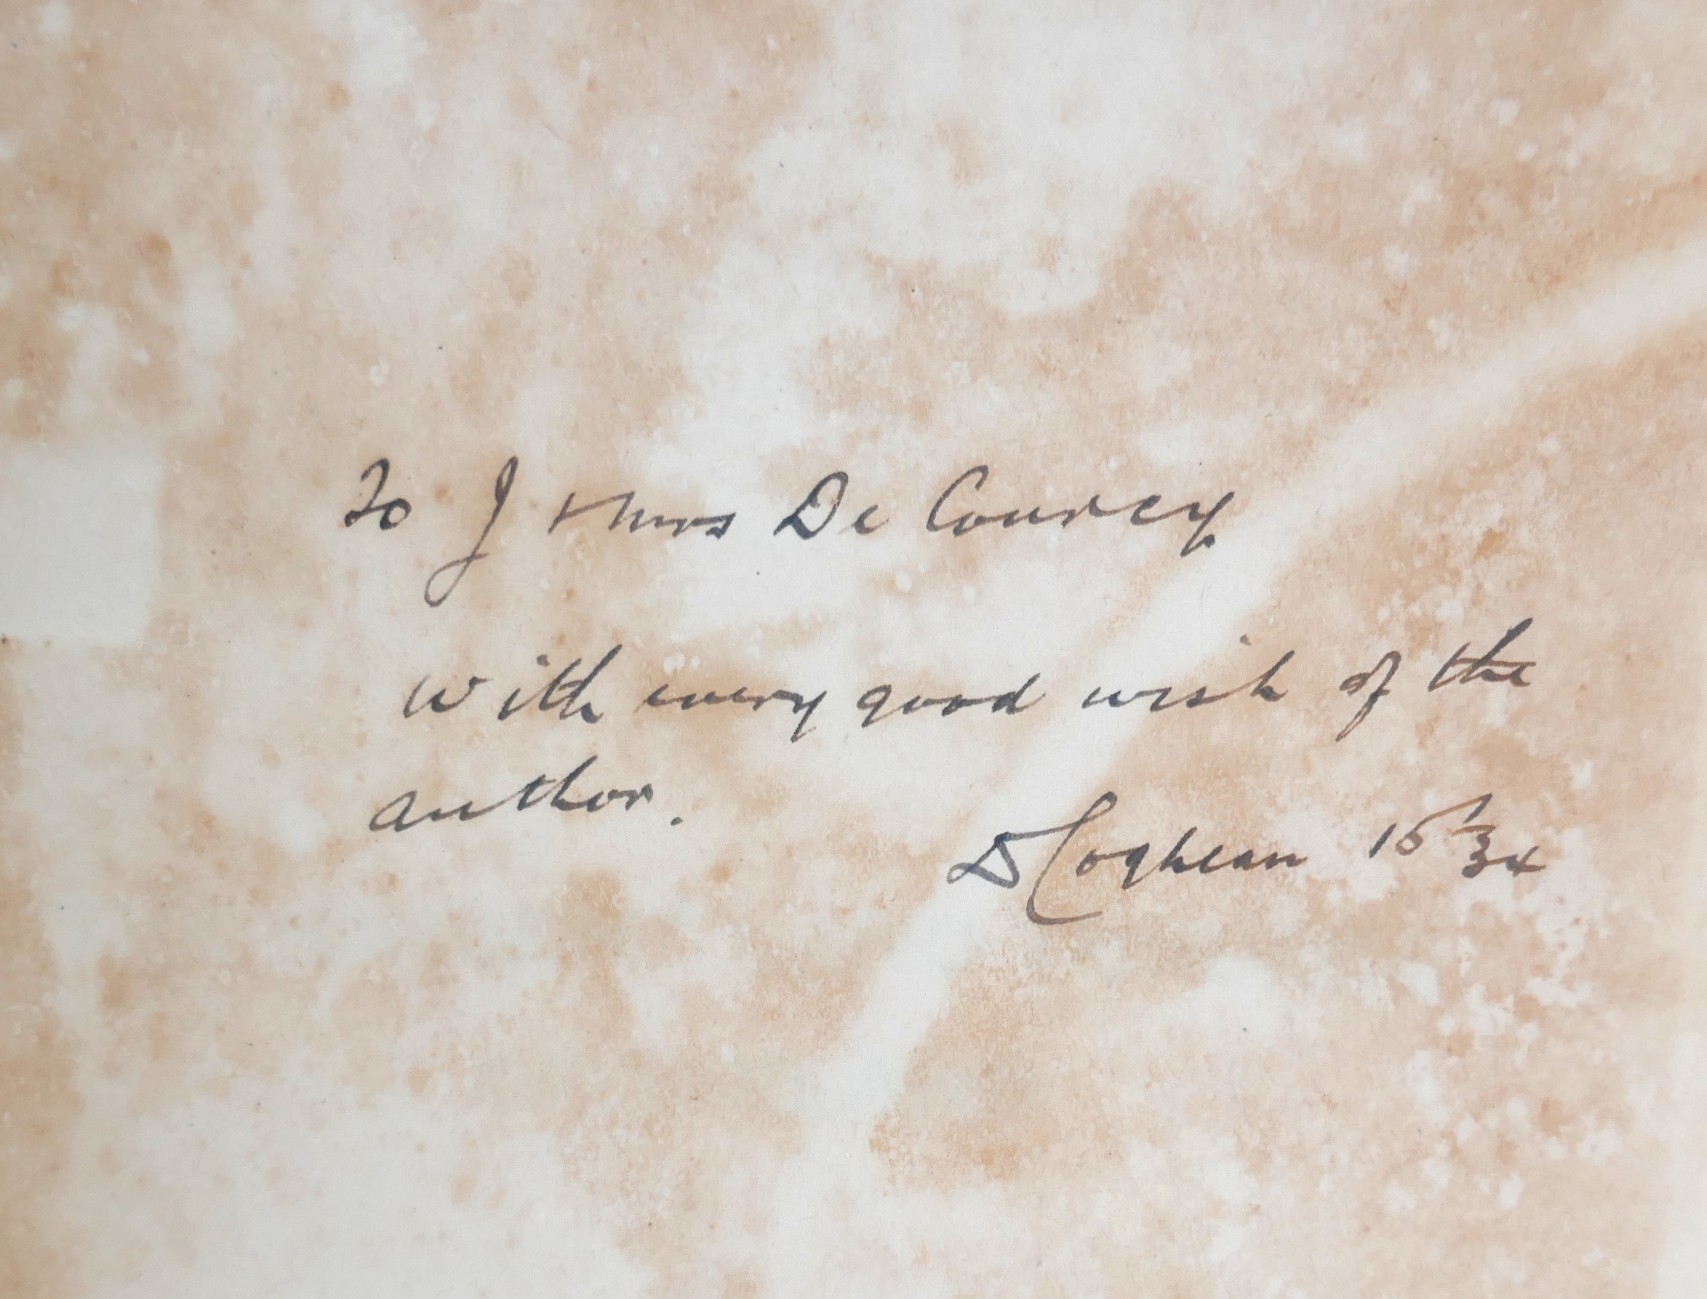 To J + Mrs De Courcy
with every good wish of the
author.
D Coghlan 15/34